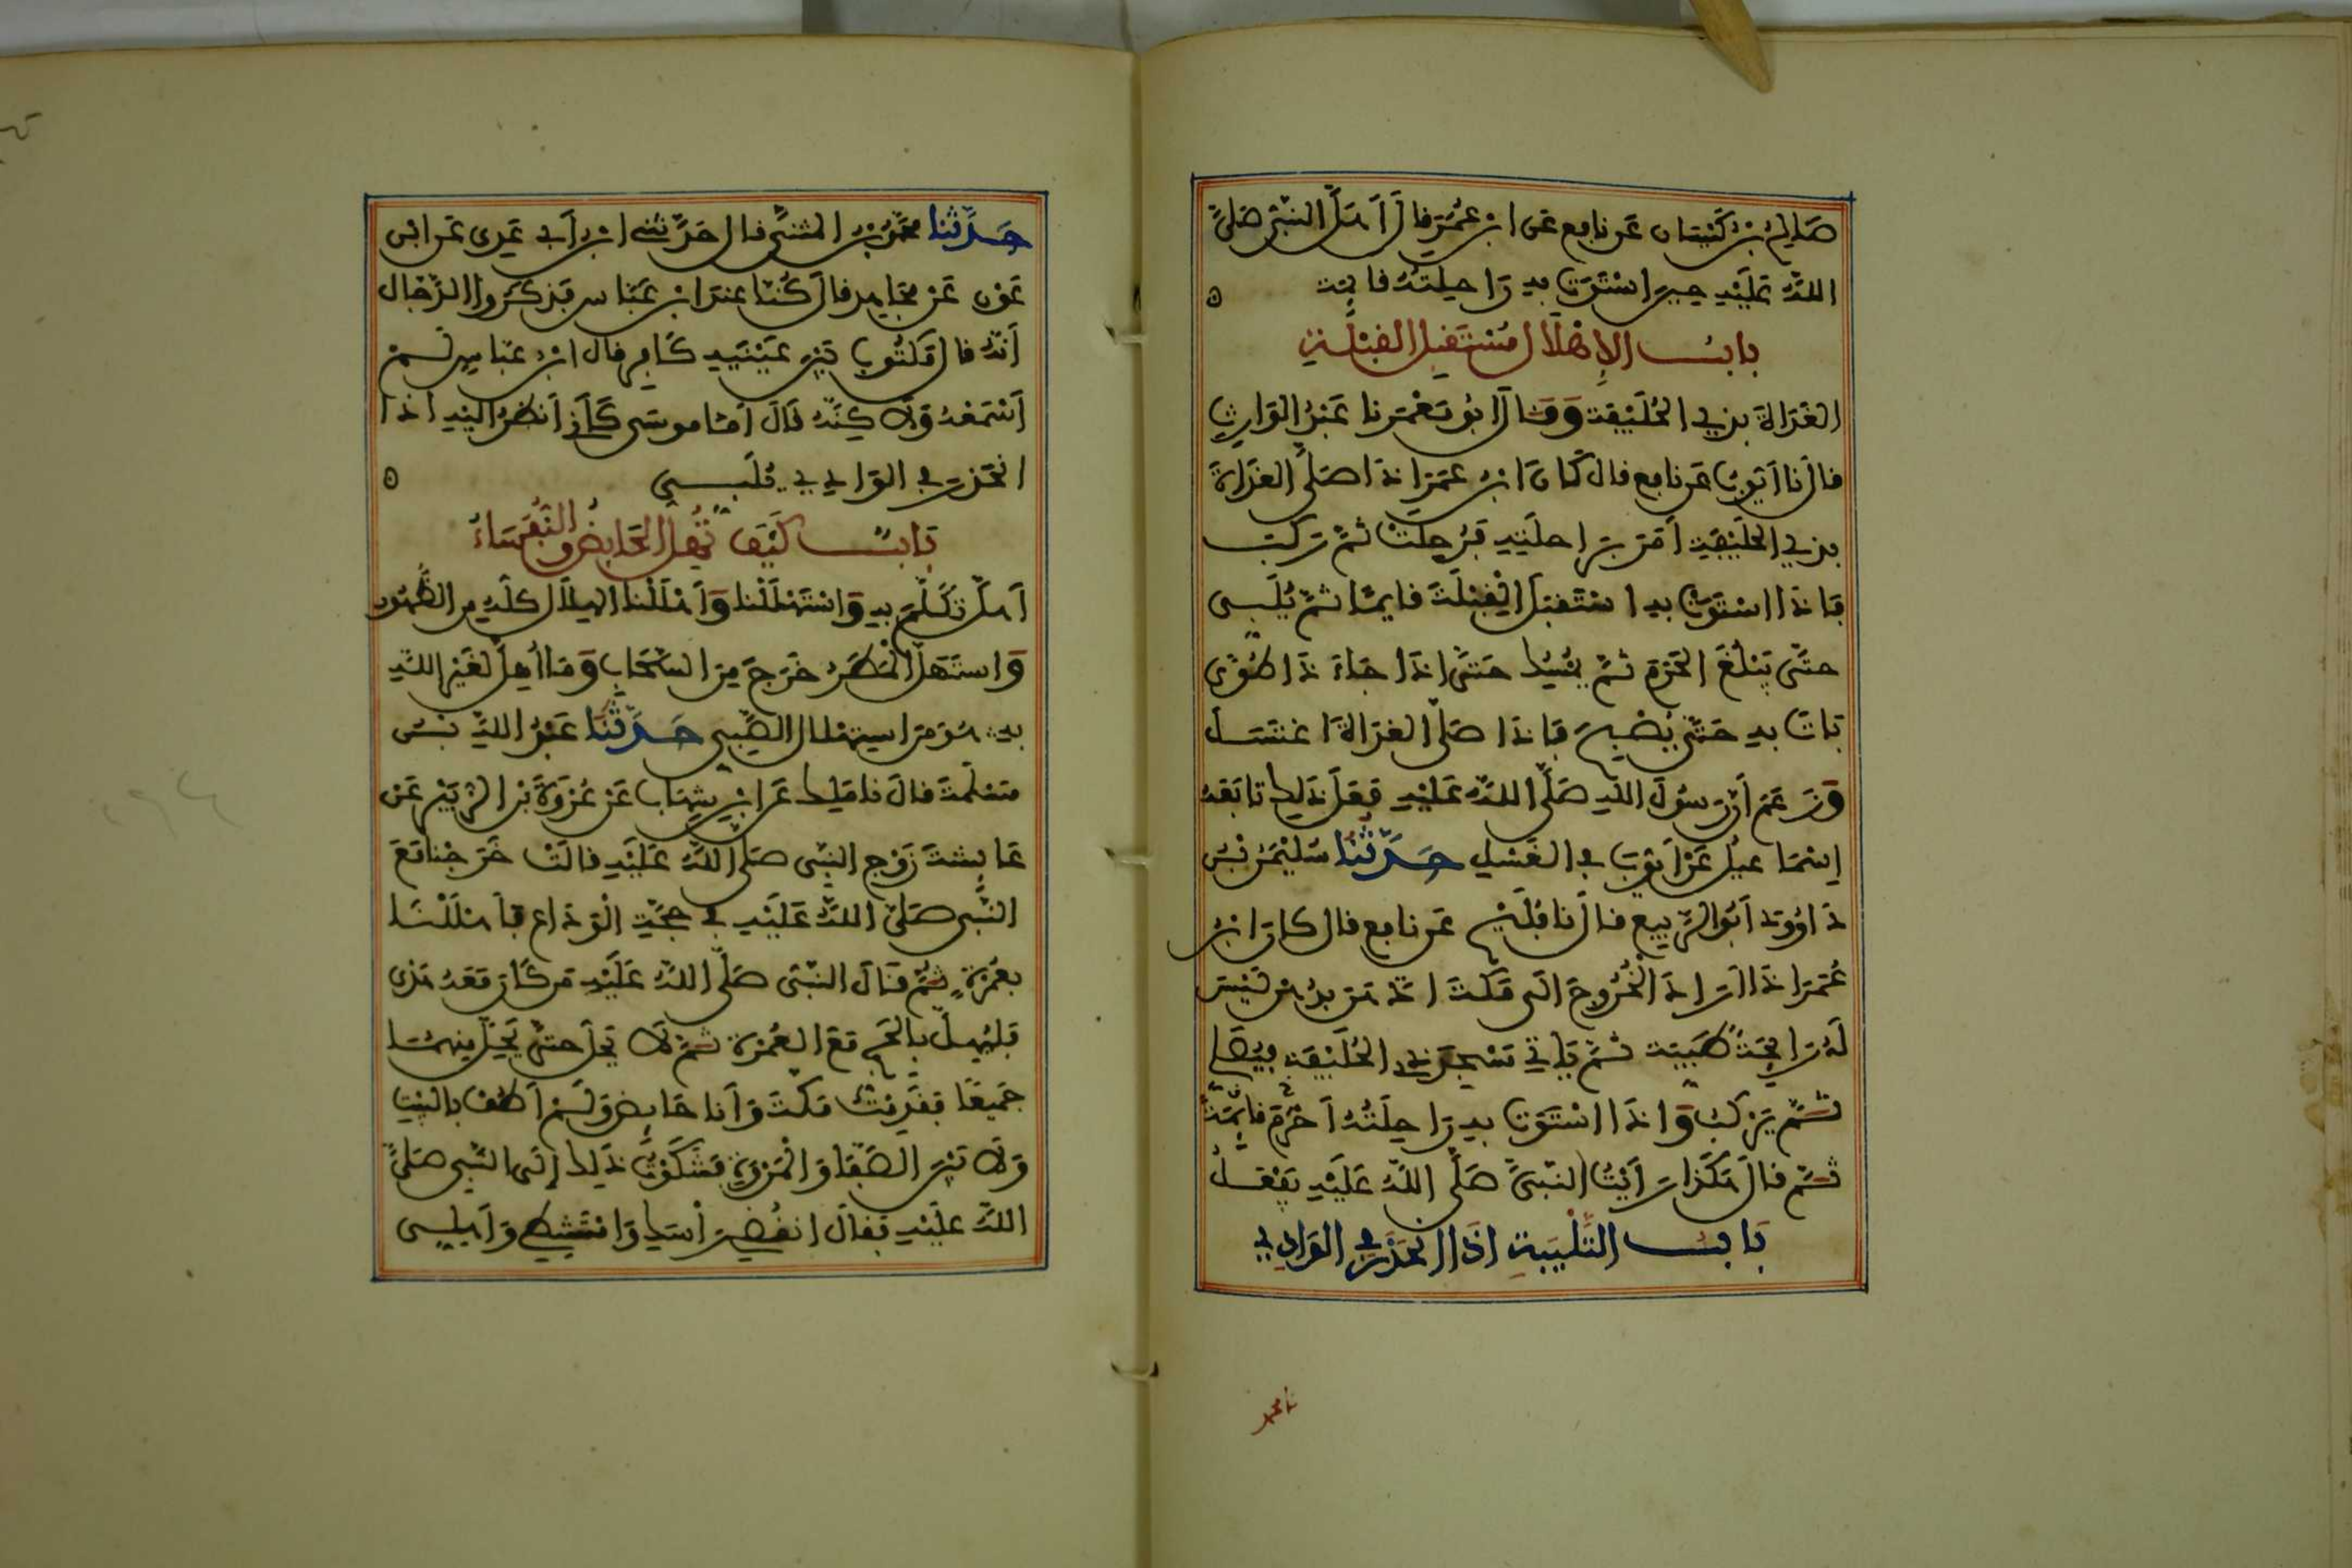 صَالِحُ بْنُ كَيْسَانَ عَن نافِعٍ عَنِ ابْنِ عُمَرَ قالَ أَهَلَّ النَّبِيُّ صَلَّى
اللَّهُ عَلَيْهِ حِينَ اسْتَوَتْ بِهِ رَاحِلَتُهُ قائِمَة
بابُ الإِهْلَالِ مُسْتَقْبِلَ القِبْلَةِ
الغَدَاةَ بِذِي الحُلَيْفَةِ وَقَالَ أَبُو مَعْمَرٍ نا عَبْدُ الوَارِثِ
قالَ نا أَيُّوبُ عَن نافِعٍ قالَ كَانَ ابْنُ عُمَرَ إِذَا صَلَّى الغَدَاةَ
بِذِي الحُلَيْفَةِ أَمَرَ بِرَاحِلَتِهِ فَرُحِلَتْ ثُمَّ رَكِبَ
فَإِذَا اسْتَوَتْ بِهِ اسْتَقْبَلَ القِبْلَةَ قائِمًا ثُمَّ يُلَبِّي
حتَّى يَبْلُغَ الحَرَمَ ثُمَّ يُمْسِكُ حَتَّى إِذَا جَاءَ ذَا طُوًى
بَاتَ بِهِ حَتَّى يُصْبِحَ فَإِذَا صَلَّى الغَدَاةَ اغْتَسَلَ
وَزَعَمَ أَنَّ رَسُولَ اللَّهِ صَلَّى اللَّهُ عَلَيْهِ فَعَلَ ذَلِكَ تَابَعَهُ
إِسْمَاعِيلُ عَنْ أَيُّوبَ فِي الغَسْلِ حَدَّثَنَا سُلَيْمَنُ بْنُ
دَاوُودَ أَبُو الرَّبِيعِ قالَ نا فُلَيْحٌ عَن نافِعٍ قالَ كانَ ابْنُ
عُمَرَ إِذَا أَرَادَ الخُرُوجَ إِلَى مَكَّةَ ادَّهَنَ بِدُهْنٍ لَيْسَ
لَهُ رَائِحَةٌ طَيِّبَة ثُمَّ يَأْتِي مَسْجِدَ ذِي الحُلَيْفَةِ فَيُصَلِّي
ثُمَّ يَرْكَبُ وَإِذَا اسْتَوَتْ بِهِ رَاحِلَتُهُ أَحْرَمَ قائِمَةً
ثُمَّ قالَ هَكَذَا رَأَيْتُ النَّبِيَّ صَلَّى اللَّهُ عَلَيْهِ يَفْعَلُ
بَابُ التَّلْبِيَةِ إِذَا انْحَدَرَ فِي الوَادِي
حَدَّثَنَا مُحَمَّدُ بْنُ المُثَنَّى قال حَدَّثَنِي ابْنُ أَبِي عَدِيٍّ عَن ابْنِ
عَوْنٍ عَنْ مُجَاهِدٍ قالَ كُنَّا عِنْدَ ابْنِ عَبَّاسٍ فَذَكَرُوا الدَّجَّالَ
أَنَّهُ قالَ مَكْتُوبٌ بَيْنَ عَيْنَيْهِ كَافِرٌ فقالَ ابْنُ عَبَّاسٍ لَمْ
أَسْمَعْهُ وَلَكِنَّهُ قَالَ أَمَّا مُوسَى كَأَنِّي أَنظُرُ إِلَيْهِ إِذَا
انْحَدَرَ فِي الوَادِي يُلَبِّي
بَابٌ كَيْفَ تُهِلُّ الحَائِضُ وَالنُّفَسَاءُ
أَهَلَّ تَكَلَّمَ بِهِ وَاسْتَهْلَلْنَا وَأَهْلَلْنَا الهِلَالَ كُلُّهُ مِنَ الظُّهُورِ
وَاسْتَهَلَّ المَطَرُ خَرَجَ مِنَ السَّحَابِ وَمَا أُهِلَّ لِغَيْرِ اللَّهِ
بِهِ هُوَ مِنَ اسْتِهْلَالِ الصَّبِيِّ حَدَّثَنَا عَبْدُ اللَّهِ بْنُ
مَسْلَمَةَ قالَ نا مَالِكٌ عَن ابْنِ شِهَابٍ عَنْ عُرْوَةَ بْنِ الزُّبَيْرِ عَنْ
عَائِشَةَ زَوْجِ النَّبِيِّ صَلَّى اللَّهُ عَلَيْهِ قالَتْ خَرَجْنَا مَعَ
النَّبِيِّ صَلَّى اللَّهُ عَلَيْهِ فِي حَجَّةِ الوَدَاعِ فَأَهْلَلْنَا
بِعُمْرَةٍ ثُمَّ قَالَ النَّبِيُّ صَلَّى اللَّهُ عَلَيْهِ مَن كَانَ مَعَهُ هَدْيٌ
فَلْيُهِلَّ بِالحَجِّ مَعَ العُمْرَةِ ثُمَّ لَا يَحِلَّ حتَّى يَحِلَّ مِنْهُمَا
جَمِيعًا فَقَدِمْتُ مَكَّةَ وَأَنا حَائِضٌ وَلَمْ أَطُفْ بِالبَيْتِ
وَلَا بَيْنَ الصَّفَا وَالمَرْوَةِ فَشَكَوْتُ ذَلِكَ إِلَى النَّبِيِّ صَلَّى
اللَّهُ عَلَيْهِ فَقَالَ انْقُضِي رَأْسَكِ وَامْتَشِطِي وَأَهِلِّي